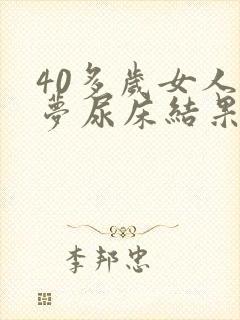 40多歲女人
夢尿床結果
李邦忠